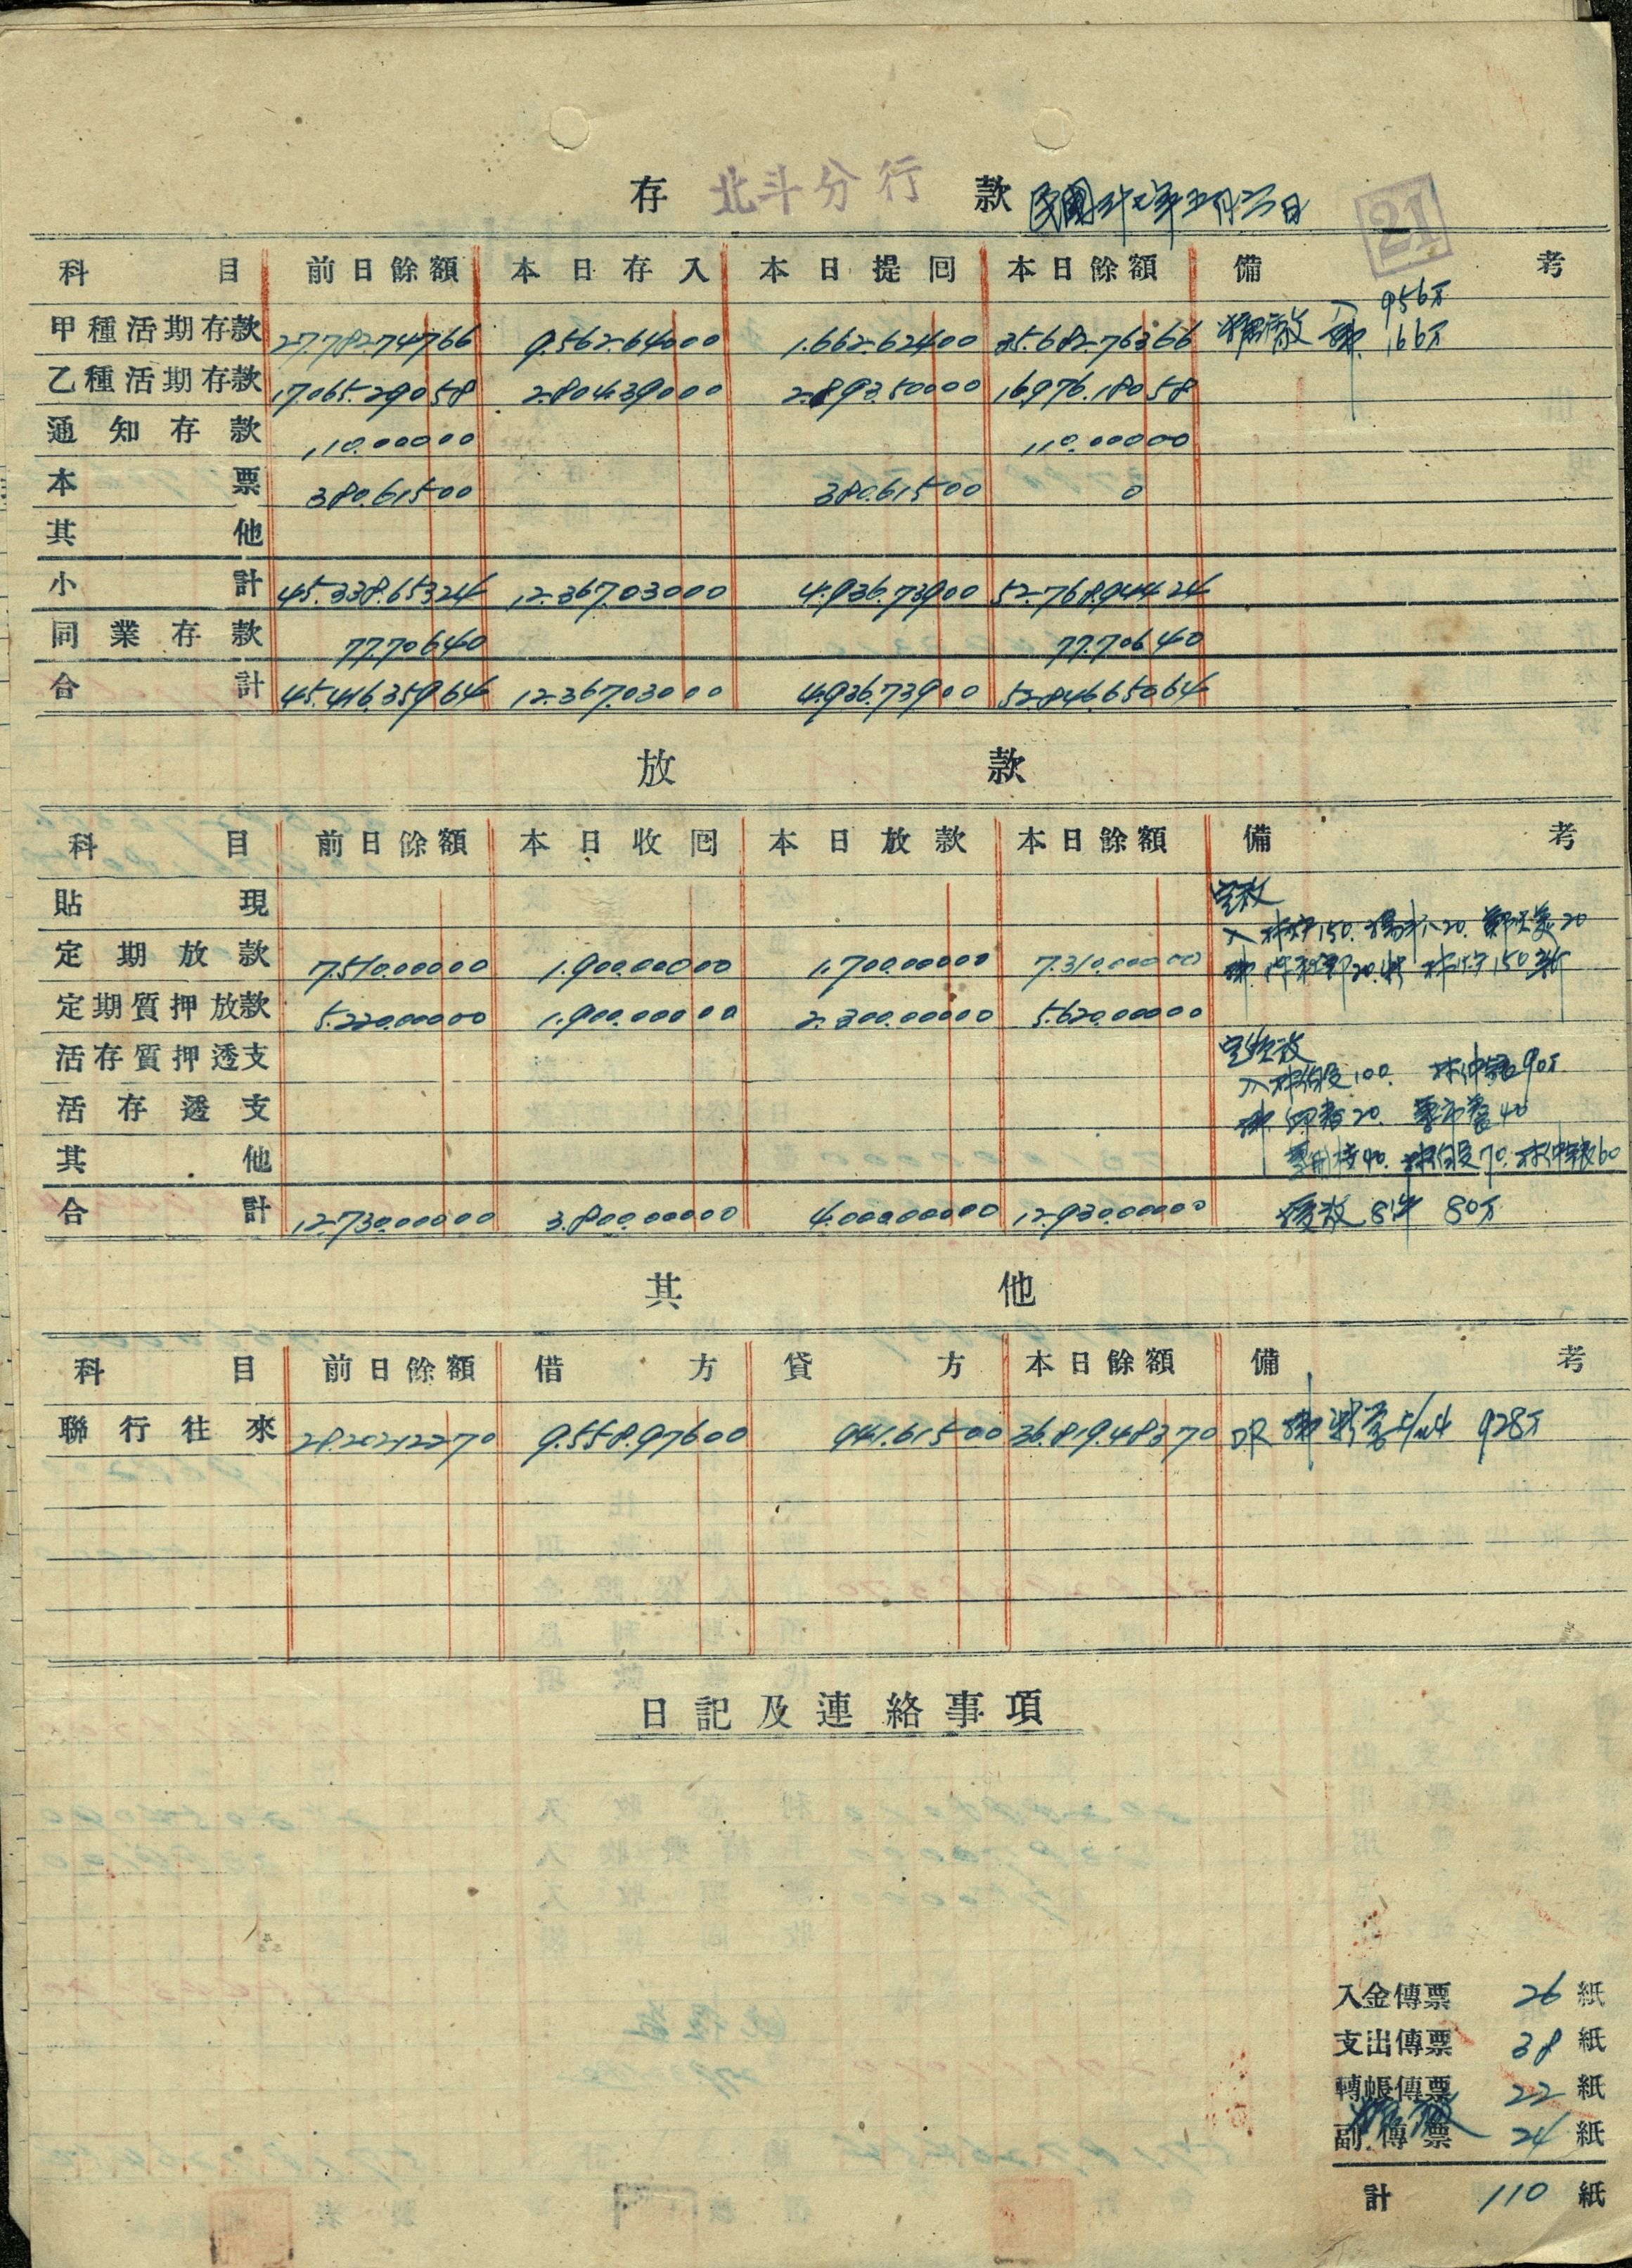 存 北斗分行 款 民國卅七年五月六日 21
科目 前日餘額 本日存入 本日提囘 本日餘額 備考
956万
甲種活期存款 27.782.74766 9.562.64000 1.662.62400 35.682.76366 166万
乙種活期存款 17.065.29058 2.804.39000 2.893.50000 16.976.18058
通知存款 110.00000 110.00000
本票 380.61500 380.61500 0
其他
小計 45.338.65324 12.367.03000 4.936.73900 52.768.94424
同業存款 77.70640 77.70640
合計 45.416.35964 12.367.03000 4.936.73900 52.846.65064
放款
科目 前日餘額 本日收囘 本日放款 本日餘額 備考
貼現 定放
入 150. 20. 20
定期放款 7.510.00000 1.900.00000 1.700.00000 7.310.00000 20. 150
定期質押放款 5.220.00000 1.900.00000 2.300.00000 5.620.00000
活存質押透支
入 100. 90万
活存透支 20. 40
其他 90. 70. 60
合計 12.730.00000 3.800.00000 4.000.00000 12.930.00000 81件 80万
其他
科目 前日餘額 借方 貸方 本日餘額 備考
聯行往來 28.202.12270 9.558.97600 941.61500 36.819.48370 DR 928万
日記及連絡事項
入金傳票 26 紙
支出傳票 38 紙
轉帳傳票 22 紙
副傳票 24 紙
計 110 紙